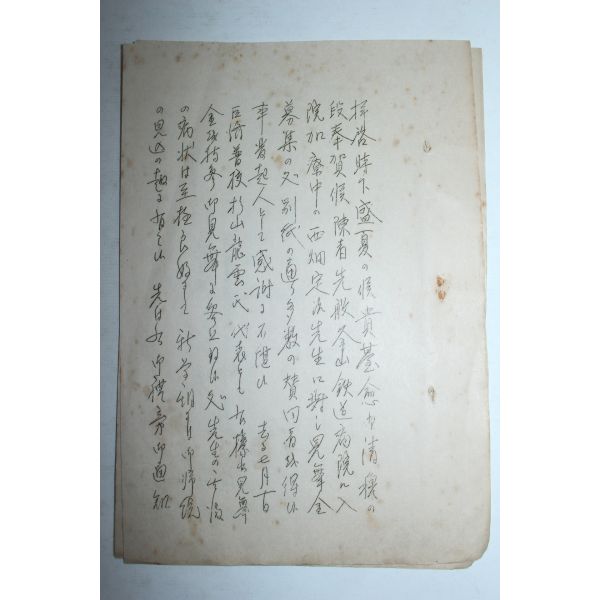 拝啓時下盛夏の候貴台愈々御清穆の
段奉賀候陳者先般釜山鉄道病院ニ入
院加療中の西畑定次先生に対し見舞金
募集の処別紙の通り多数の賛同者を得
発起人として感謝に不堪候 去る七月十日
普校杉山龍雲氏代表として見舞
金を持参御見舞に 処先生の
の病状は至極良好にして新学期より御帰
の見込の趣に有之候 先は 御礼旁御通知